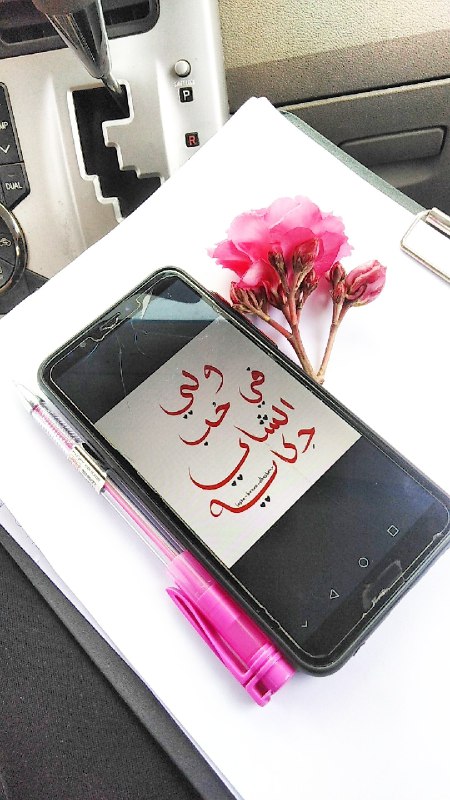 P
R
DUAL
ولي في
حب
الشاي
حكاية